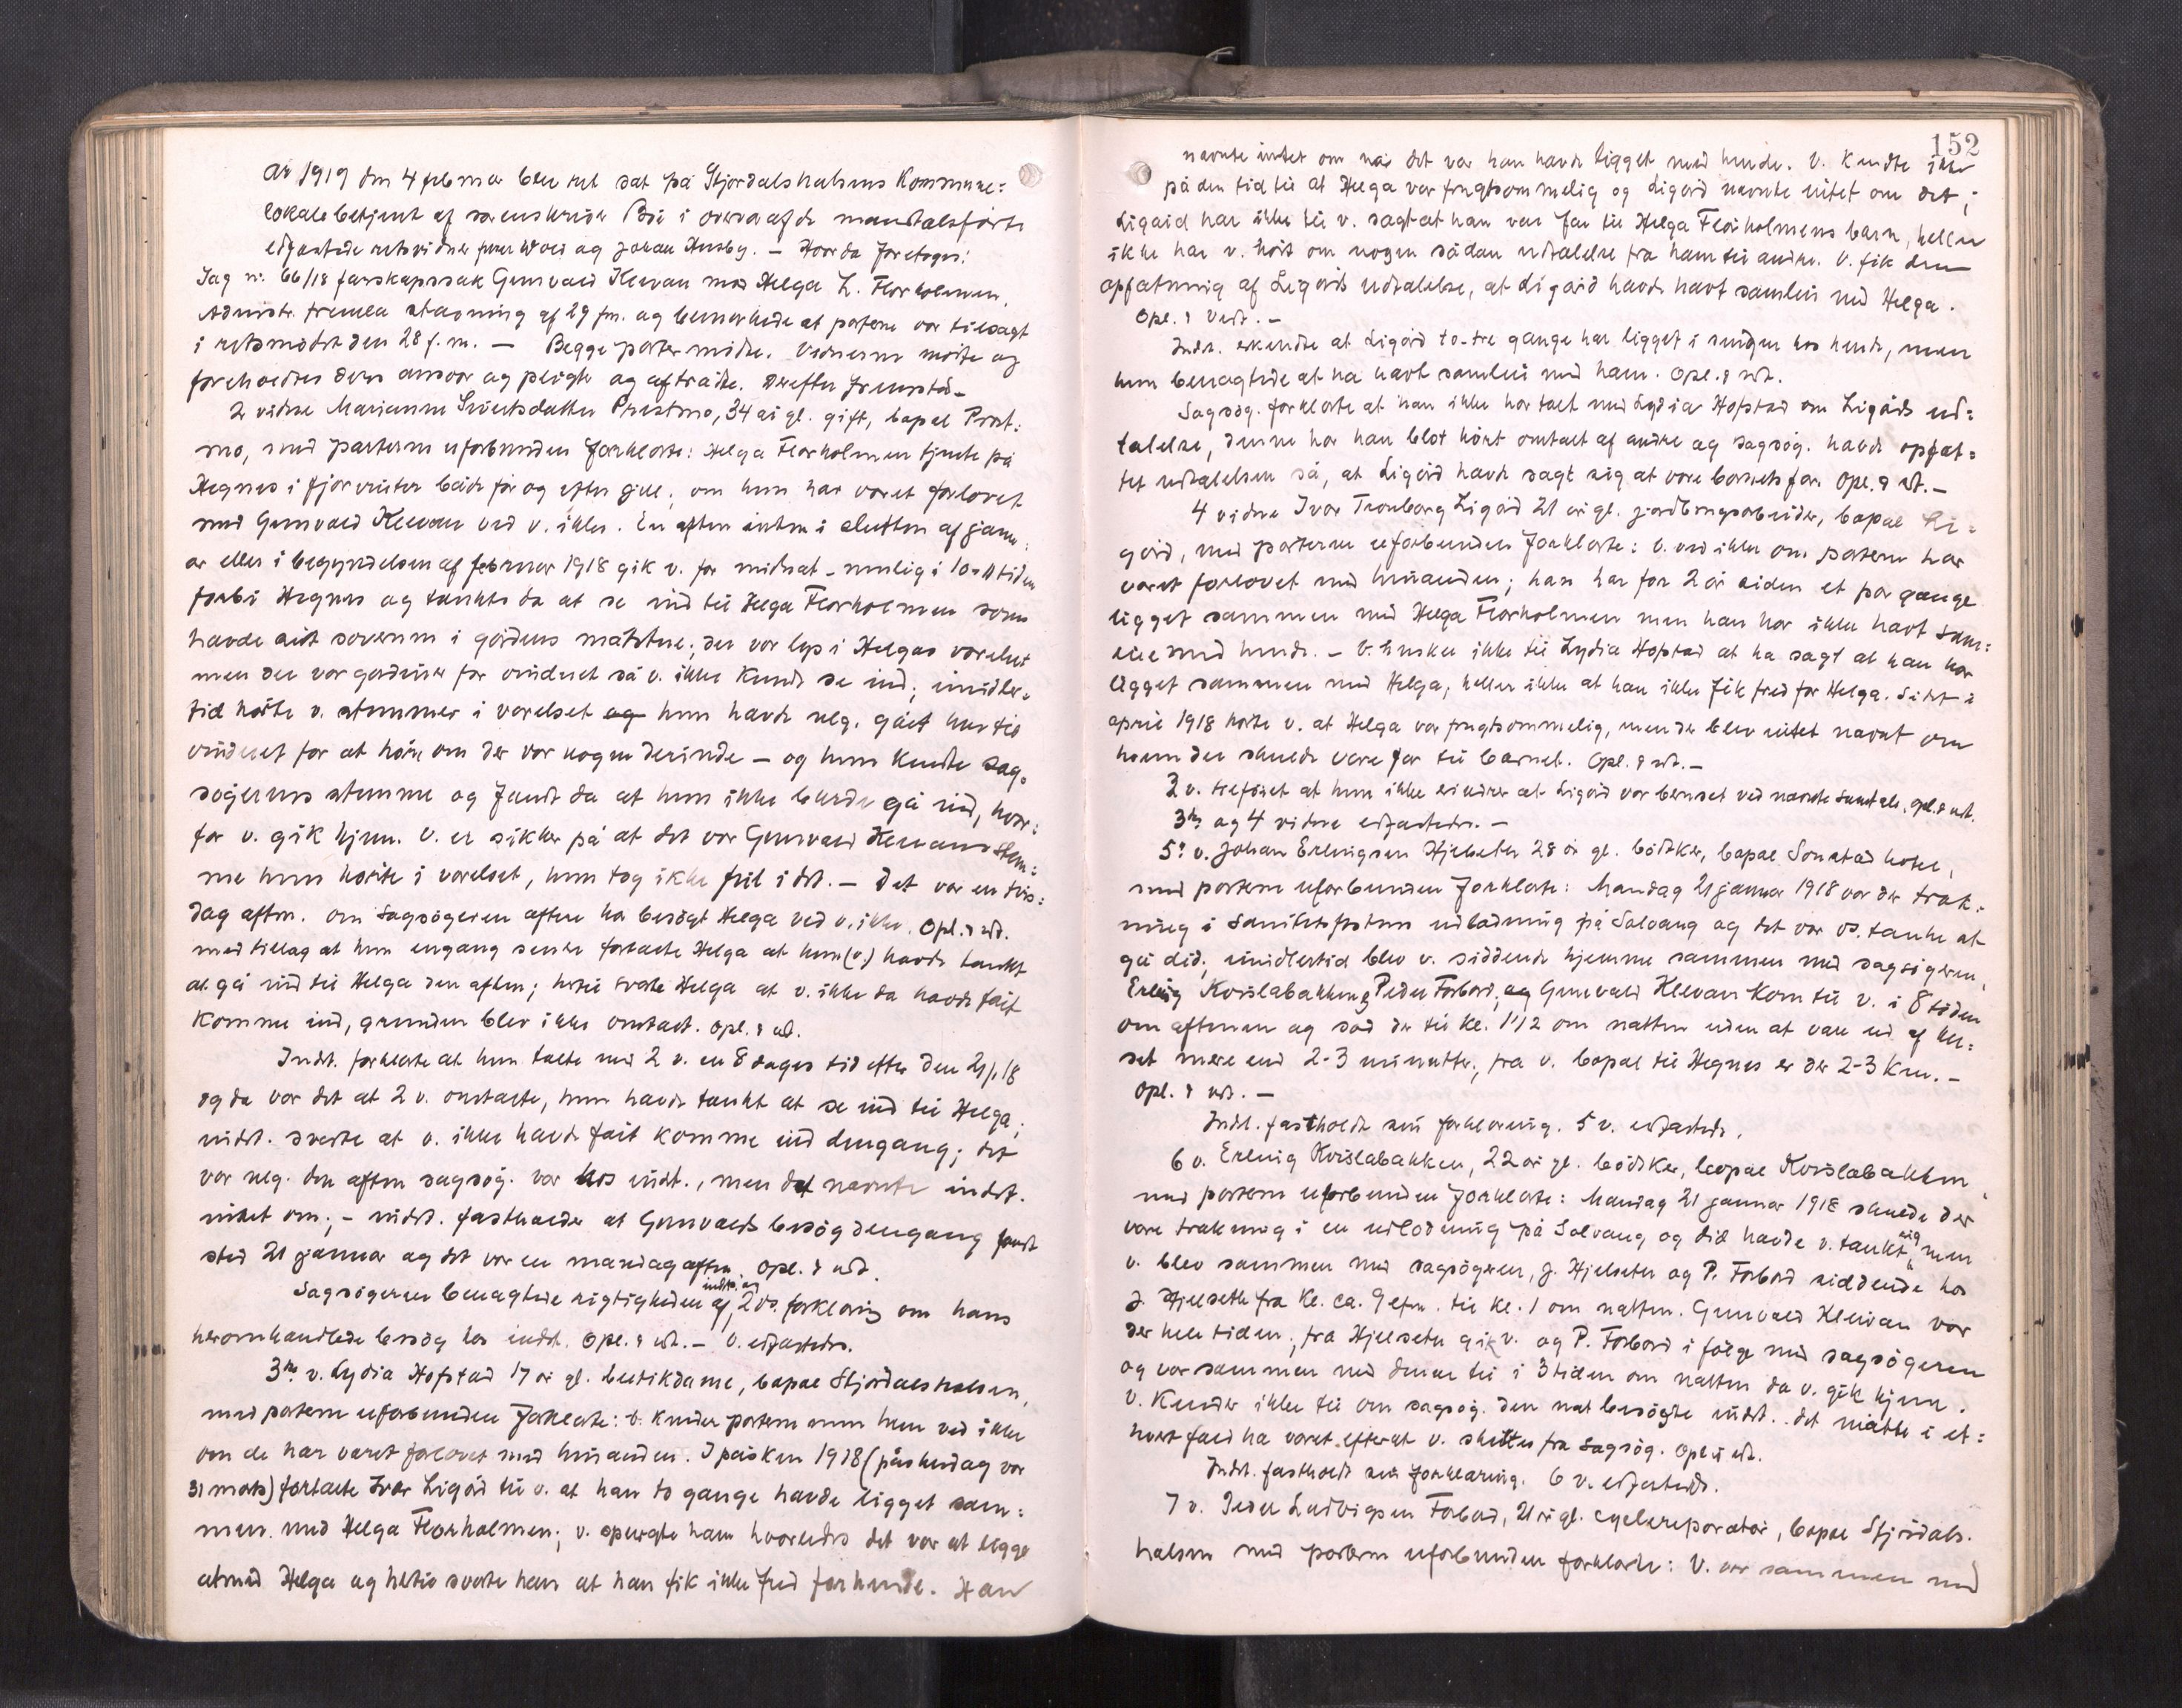 År 1919 den 4 februar blev ret sat på Stjørdalshalsens Kommune=
lokale betjent af sorenskriver Bøe i overvær af de mandtalsførte
edfæstede retsvidner Woll og Johan Husby. – Hvorda foretoges:
Sag nr. 66/18 farskapssak Gunvald Klevan mod Helga L. Florholmen.
Admstr. fremla stævning af 29 f.m. og bemerkede at parterne var tilsagt
i retsmødet den 28 f.m. – Begge parter mødte. Vidnerne mødte og
foreholdtes deres ansvar og pligter og aftrådte. Derefter fremstod
2 vidne Marianne Sivertsdatter Prestmo, 34 år gl. gift, bopæl Prest=
mo, med parterne uforbunden forklarte: Helga Florholmen tjente på
Hegnes i fjor vinter både før og efter jul; om hun har været forlovet
med Gunvald Klevan ved v. ikke. En aften enten i slutten af janu=
ar eller i begyndelsen af februar 1918 gik v. før midnat – mulig i 10-11 tiden
forbi Hegnes og tænkte da at se ind til Helga Florholmen som
havde sit soverum i gårdens matstue; der var lys i Helgas værelse
men der var gardiner for vinduet så v. ikke kunde se ind; imidler=
tid hørte v. stemmer i værelset og hun havde nlg. gået hen til
vinduet for at høre om der var nogen derinde – og hun kendte sag=
søgerens stemme og fandt da at hun ikke burde gå ind, hvor=
for v. gik hjem. V. er sikker på at det var Gunvald Klevans stem=
me hun hørte i værelset, hun tog ikke feil i det. – Det var en tirs=
dag aften. Om sagsøgeren oftere ha besøgt Helga ved v. ikke. Opl. & vedt.
med tillæg at hun engang senere fortalte Helga at hun (v.) havde tænkt
at gå ind til Helga den aften; hertil svarte Helga at v. ikke da havde fåit
komme ind, grunden blev ikke omtalt. Opl. & vedt.
Indst. forklarte at hun talte med 2 v. en 8 dages tid efter den 21/1 18
og da var det at 2 v. omtalte, hun havde tænkt at se ind til Helga;
indst. svarte at v. ikke havde fåit komme ind dengang; det
var nlg. den aften sagsøg. var hos indst., men det nævnte indst.
intet om; – indst. fastholder at Gunvalds besøg dengang fandt
sted 21 januar og det var en mandag aften. Opl. & vedt.
Sagsøgeren benægtede rigtigheden af indst. og 2 vs. forklaring om hans
heromhandlede besøg hos indst. Opl. & vedt. – V. edfæstedes.
3die v. Lydia Hofstad 17 år gl. butikdame, bopæl Stjørdalshalsen,
med parterne uforbunden forklarte: v. kender parterne men hun ved ikke
om de har været forlovet med hinanden. I påsken 1918 (påskedag var
31 mars) fortalte Ivar Ligård til v. at han to gange havde ligget sam=
men med Helga Florholmen; v. spurgte ham hvorledes det var at ligge
ved Helga og hertil svarte han at han fik ikke fred for hende. Han
152
nævnte intet om når det var han havde ligget med hende. V. kendte ikke
på den tid til at Helga var frugtsommelig og Ligård nævnte intet om det;
Ligård har ikke til v. sagt at han var far til Helga Florholmens barn, heller
ikke har v. hørt om nogen sådan udtalelse fra ham til andre. V. fik den
opfatning af Ligårds udtalelse, at Ligård havde havt samleie med Helga.
Opl. & vedt. –
Indst. erkendte at Ligård to-tre gange har ligget i sengen hos hende, men
hun benægtede at ha havt samleie med ham. Opl. & vedt.
Sagsøg. forklarte at han ikke har talt med Lydia Hofstad om Ligårds ud=
talelse, denne har han blot hørt omtalt af andre og sagsøg. havde opfat=
tet udtalelsen så, at Ligård havde sagt sig at være barnets far. Opl. & vedt. –
4 vidne Ivar Tronborg Ligård 21 år gl. jordbrugsarbeider, bopæl Li=
gård, med parterne uforbunden forklarte: V. ved ikke om parterne har
været forlovet med hinanden; han har for 2 år siden et par gange
ligget sammen med Helga Florholmen men han har ikke havt sam=
leie med hende. – V. husker ikke til Lydia Hofstad at ha sagt at han har
ligget sammen med Helga, heller ikke at han ikke fik fred for Helga. Sidst i
april 1918 hørte v. at Helga var frugtsommelig, men der blev intet nævnt om
hvem der skulde være far til barnet. Opl. & vedt. –
3 v. tilføiet at hun ikke erindrer at Ligård var beruset ved nævnte samtale. Opl. & vedt.
3die og 4 vidne edfæstedes. –
5te v. Johan Erlingsen Hjelseter 28 år gl. bødker, bopæl Sonstad hotel,
med parterne uforbunden forklarte: Mandag 21 januar 1918 var der træk=
ning i Sanitetsforenens udlodning på Solvang og det var vs. tanke at
gå did; imidlertid blev v. siddende hjemme sammen med sagsøgeren,
Erling Kvislabakken, Peder Forbord, og Gunvald Klevan kom til v. i 8 tiden
om aftenen og sad der til kl. 1 1/2 om natten uden at være ud af hu=
set mere end 2-3 minutter, fra v. bopæl til Hegnes er der 2-3 km. –
Opl. & vedt. –
Indst. fastholdt sin forklaring. 5 v. edfæstedes.
6 v. Erling Kvislabakken, 22 år gl. bødker, bopæl Kvislabakken,
med parterne uforbunden forklarte: Mandag 21 januar 1918 skulde der
være trækning i en udlodning på Solvang og did havde v. tænkt sig, men
v. blev sammen med sagsøgeren, J. Hjelseter og P. Forbord siddende hos
J. Hjelseth fra kl. ca. 9 efm. til kl. 1 om natten. Gunvald Klevan var
der hele tiden; fra Hjelseter gik v. og P. Forbord i følge med sagsøgeren
og var sammen med denne til i 3 tiden om natten da v. gik hjem.
V. kender ikke til om sagsøg. den nat besøgte indst. det måtte i et=
hvert fald ha været efterat v. skiltes fra sagsøg. Opl. & vedt.
Indst. fastholdt sin forklaring. 6 v. edfæstedes.
7 v. Peder Ludvigsen Forbord, 21 år gl. cyclereparatør, bopæl Stjørdals=
halsen med parterne uforbunden forklarte: V. var sammen med